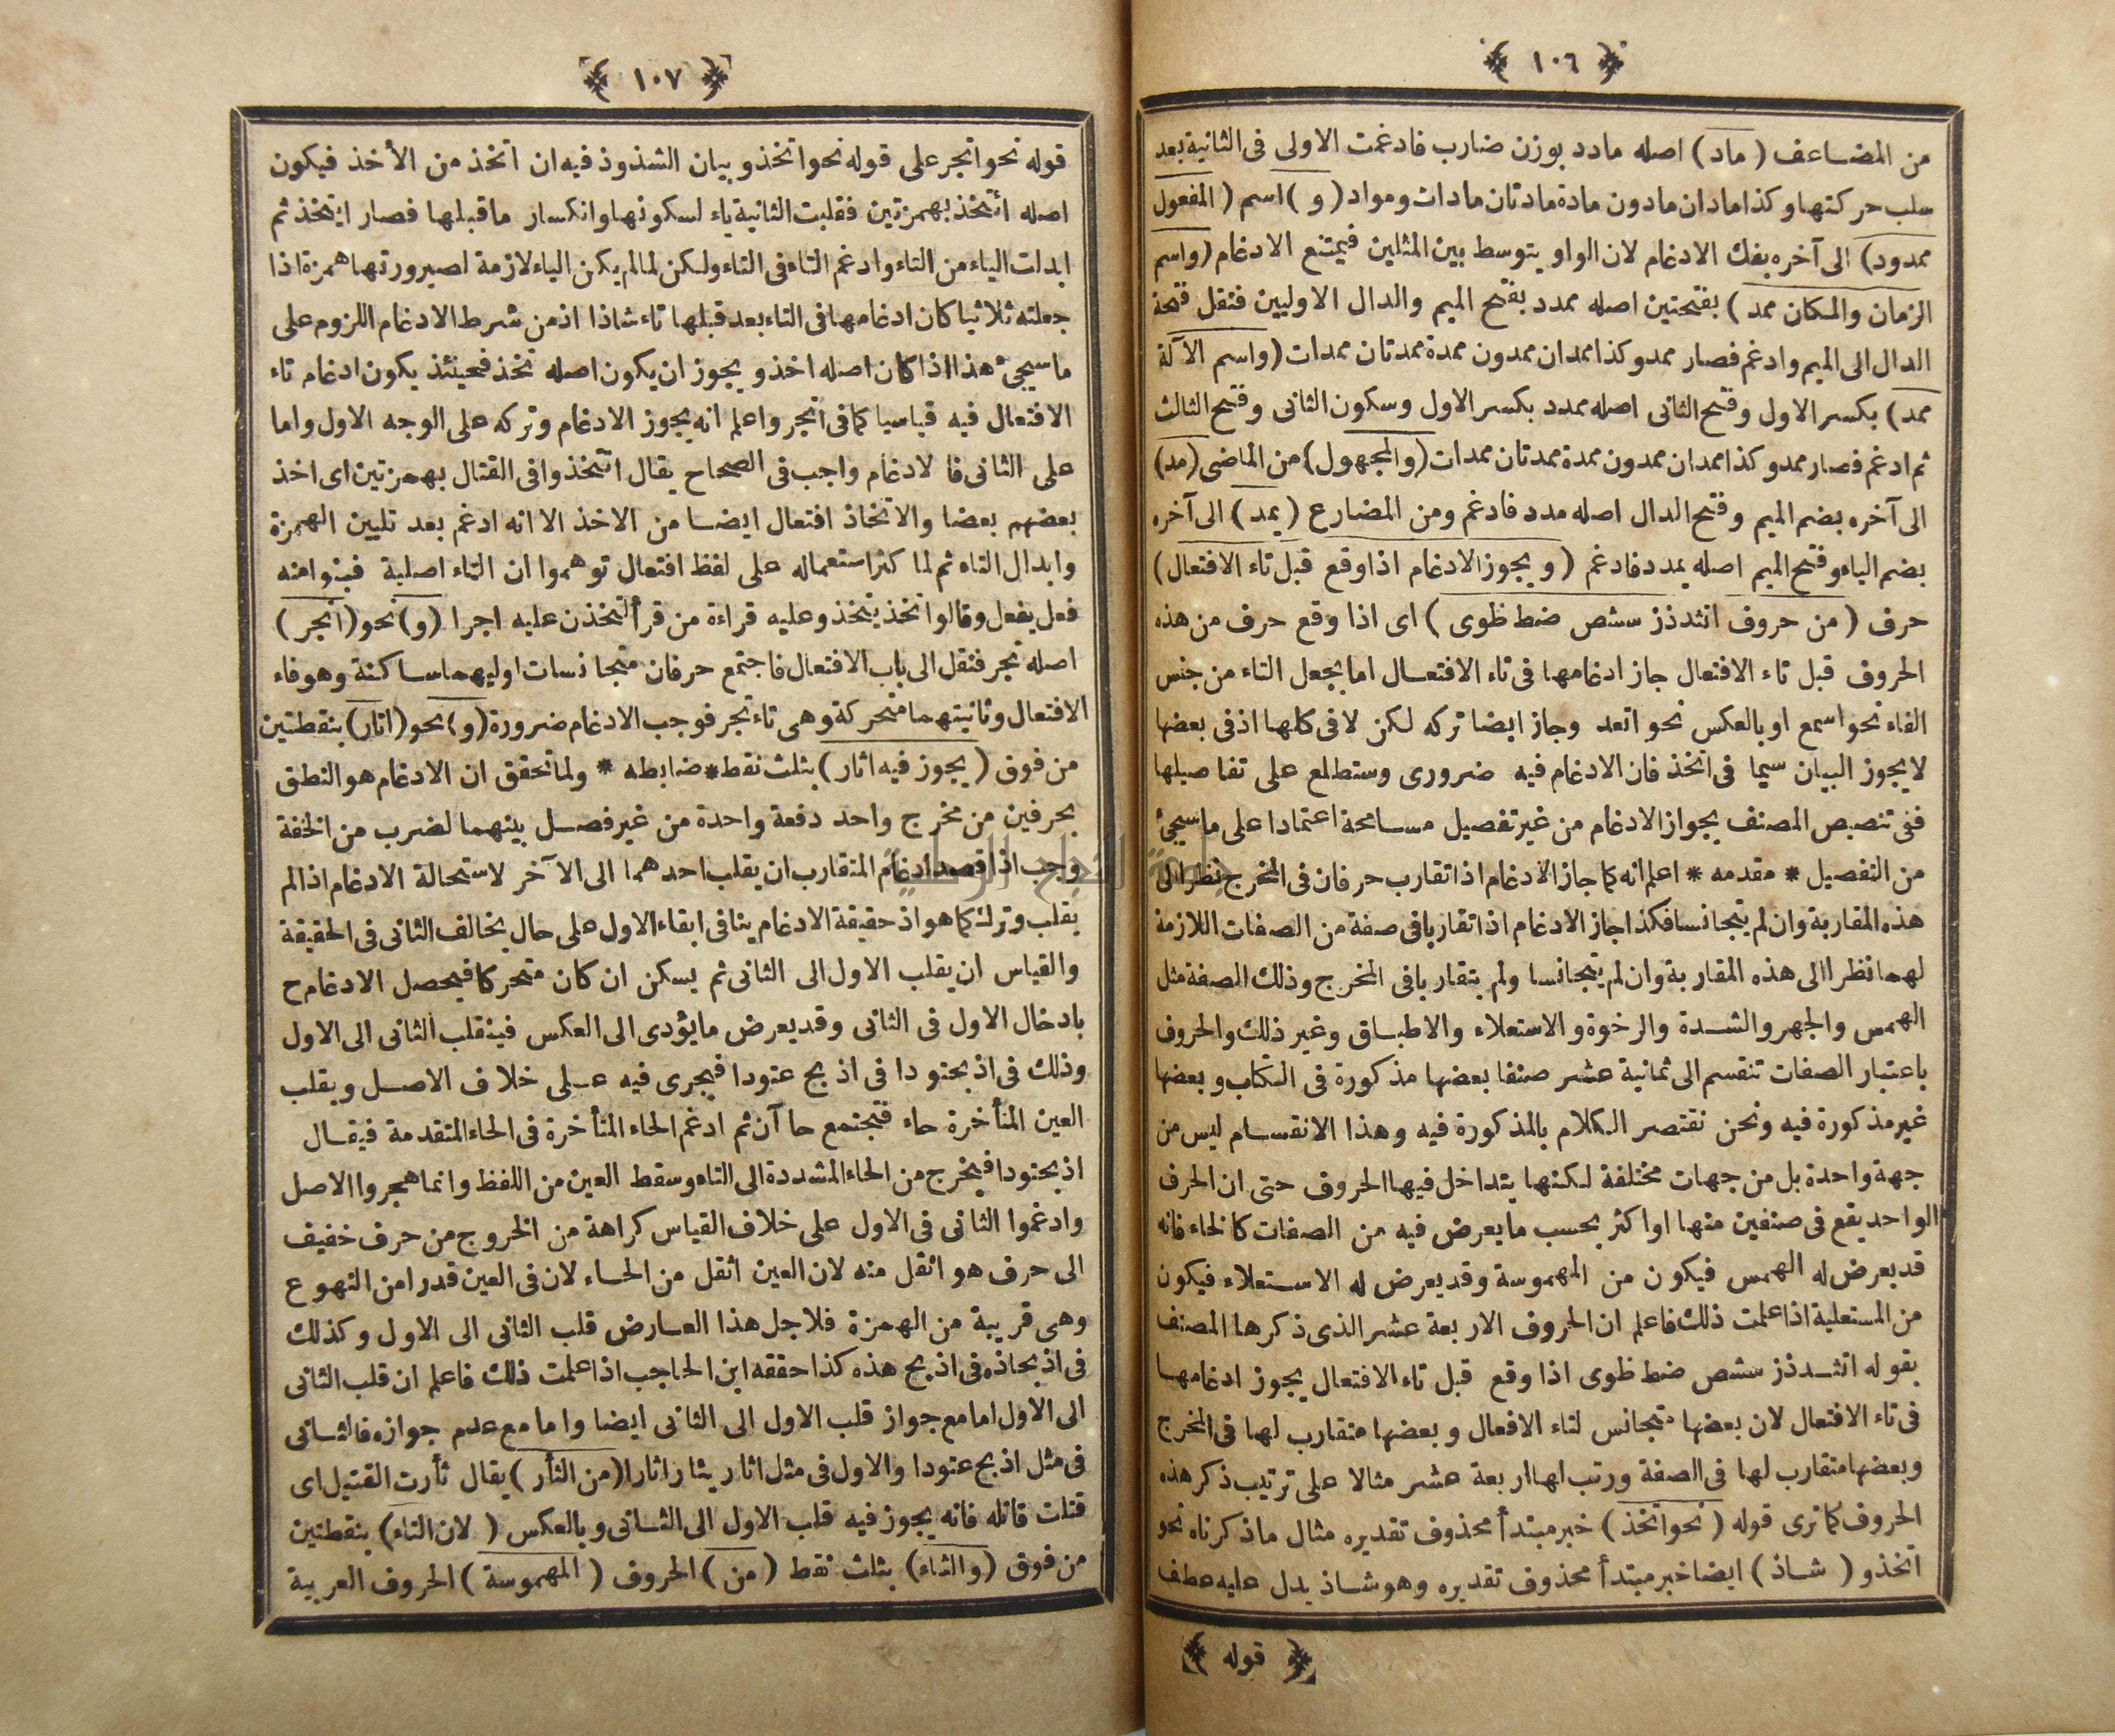 ﴿ ١٠٦ ﴾
من المضاعف ( ماد ) اصله مادد بوزن ضارب فادغمت الاولى فى الثانية بعد
سلب حركتها وكذا مادان مادون مادة مادتان مادات ومواد ( و ) اسم ( المفعول
ممدود) الى آخره بفك الادغام لان الواو يتوسط بين المثلين فيمتنع الادغام (واسم
الزمان والمكان ممد ) بفتحتين اصله ممدد بفتح الميم والدال الاوليين فنقل فتحة
الدال الى الميم وادغم فصار ممد وكذا ممدان ممدون ممدة ممدتان ممدات (واسم الآلة
ممد ) بكسر الاول وفتح الثانى اصله ممدد بكسر الاول وسكون الثانى وفتح الثالث
ثم ادغم فصار ممد وكذا ممدان ممدون ممدة ممدتان ممدات (والمجهول) من الماضى (مد)
الى آخره بضم الميم وفتح الدال اصله مدد فادغم ومن المضارع ( يمد ) الى آخره
بضم الياء وفتح الميم اصله يمدد فادغم ( ويجوز الادغام اذا وقع قبل تاء الافتعال )
حرف ( من حروف اتثدذز سشص ضط ظوى ) اى اذا وقع حرف من هذه
الحروف قبل تاء الافتعال جاز ادغامها فى تاء الافتعال اما بجعل التاء من جنس
الفاء نحو اسمع او بالعكس نحو اتعد وجاز ايضا تركه لكن لا فى كلها اذ فى بعضها
لا يجوز البيان سيما فى اتخذ فان الادغام فيه ضرورى وستطلع على تفاصيلها
ففى تنصيص المصنف بجواز الادغام من غير تفصيل مسامحة اعتمادا على ماسيجئ
من التفصيل * مقدمه * اعلم انه كما جاز الادغام اذا تقارب حرفان فى المخرج نظرا الى
هذه المقاربة وان لم يتجانسا فكذا جاز الادغام اذا تقاربا فى صفة من الصفات اللازمة
لهما نظرا الى هذه المقاربة وان لم يتجانسا ولم يتقاربا فى المخرج وذلك الصفة مثل
الهمس والجهر والشدة والرخوة والاستعلاء والاطباق وغير ذلك والحروف
باعتبار الصفات تنقسم الى ثمانية عشر صنفا بعضها مذكورة فى الكتاب وبعضها
غير مذكورة فيه ونحن نقتصر الكلام بالمذكورة فيه وهذا الانقسام ليس من
جهة واحدة بل من جهات مختلفة لكنها يتداخل فيها الحروف حتى ان الحرف
الواحد يقع فى صنفين منها او اكثر بحسب ما يعرض فيه من الصفات كالخاء فانه
قد يعرض له الهمس فيكون من المهموسة وقد يعرض له الاستعلاء فيكون
من المستعلية اذا علمت ذلك فاعلم ان الحروف الاربعة عشر الذى ذكرها المصنف
بقوله اتثدذز سشص ضط ظوى اذا وقع قبل تاء الافتعال يجوز ادغامها
فى تاء الافتعال لان بعضها متجانس لتاء الافعال وبعضها متقارب لها فى المخرج
وبعضها متقارب لها فى الصفة ورتب لها اربعة عشر مثالا على ترتيب ذكر هذه
الحروف كما ترى قوله ( نحو اتخذ ) خبر مبتدأ محذوف تقديره مثال ما ذكرناه نحو
اتخذ و ( شاذ ) ايضا خبر مبتدأ محذوف تقديره وهو شاذ يدل عليه عطف
﴿ قوله ﴾
﴿ ١٠٧ ﴾
قوله نحو اتجر على قوله نحو اتخذ وبيان الشذوذ فيه ان اتخذ من الأخذ فيكون
اصله أئتخذ بهمزتين فقلبت الثانية ياء لسكونها وانكسار ماقبلها فصار ايتخذ ثم
ابدلت الياء من التاء وادغم التاء فى التاء ولكن لما لم يكن الياء لازمة لصيرورتها همزة اذا
جعلته ثلاثيا كان ادغامها فى التاء بعد قبلها تاء شاذا اذ من شرط الادغام اللزوم على
ماسيجئ هذا اذا كان اصله اخذ ويجوز ان يكون اصله تخذ فحينئذ يكون ادغام تاء
الافتعال فيه قياسيا كما فى اتجر واعلم انه يجوز الادغام وتركه على الوجه الاول واما
على الثانى فا لادغام واجب فى الصحاح يقال ائتخذوا فى القتال بهمزتين اى اخذ
بعضهم بعضا والاتخاذ افتعال ايضا من الاخذ الا انه ادغم بعد تليين الهمزة
وابدال التاء ثم لما كثر استعماله على لفظ افتعال توهموا ان التاء اصلية فبنوا منه
فعل يفعل وقالوا تخذ يتخذ وعليه قراءة من قرأ لتخذن عليه اجرا ( و ) نحو ( اتجر )
اصله تجر فنقل الى باب الافتعال فاجتمع حرفان متجانسات اوليهما ساكنة وهو فاء
الافتعال وثانيتهما متحركة وهى تاء تجر فوجب الادغام ضرورة ( و ) نحو ( اتار ) بنقطتين
من فوق ( يجوز فيه اثار ) بثلث نقط * ضابطه * ولما تحقق ان الادغام هو النطق
بحرفين من مخرج واحد دفعة واحدة من غير فصل بينهما لضرب من الخفة
وجب اذا قصد ادغام المتقارب ان يقلب احدهما الى الآخر لاستحالة الادغام اذا لم
يقلب وترك كما هو اذ حقيقة الادغام ينافى ابقاء الاول على حال يخالف الثانى فى الحقيقة
والقياس ان يقلب الاول الى الثانى ثم يسكن ان كان متحركا فيحصل الادغام ح
بادخال الاول فى الثانى وقد يعرض ما يؤدى الى العكس فينقلب الثانى الى الاول
وذلك فى اذبحتودا فى اذبح عتودا فيجرى فيه على خلاف الاصل ويقلب
العين المتأخرة حاء فتجتمع حاآن ثم ادغم الحاء المتأخرة فى الحاء المتقدمة فيقال
اذبحتودا فيخرج من الحاء المشددة الى التاء وسقط العين من اللفظ وانما هجروا الاصل
وادغموا الثانى فى الاول على خلاف القياس كراهة من الخروج من حرف خفيف
الى حرف هو اثقل منه لان العين اثقل من الحاء لان فى العين قدرا من التهوع
وهى قريبة من الهمزة فلاجل هذا العارض قلب الثانى الى الاول وكذلك
فى اذبحاذه فى اذبح هذه كذا حققه ابن الحاجب اذا علمت ذلك فاعلم ان قلب الثانى
الى الاول اما مع جواز قلب الاول الى الثانى ايضا واما مع عدم جوازه فالثانى
فى مثل اذبح عتودا والاول فى مثل اثار يثار اثارا ( من الثأر ) يقال ثأرت القتيل اى
قتلت قاتله فانه يجوز فيه قلب الاول الى الثانى وبالعكس ( لان التاء ) بنقطتين
من فوق ( والثاء ) بثلث نقط ( من ) الحروف ( المهموسة ) الحروف العربية